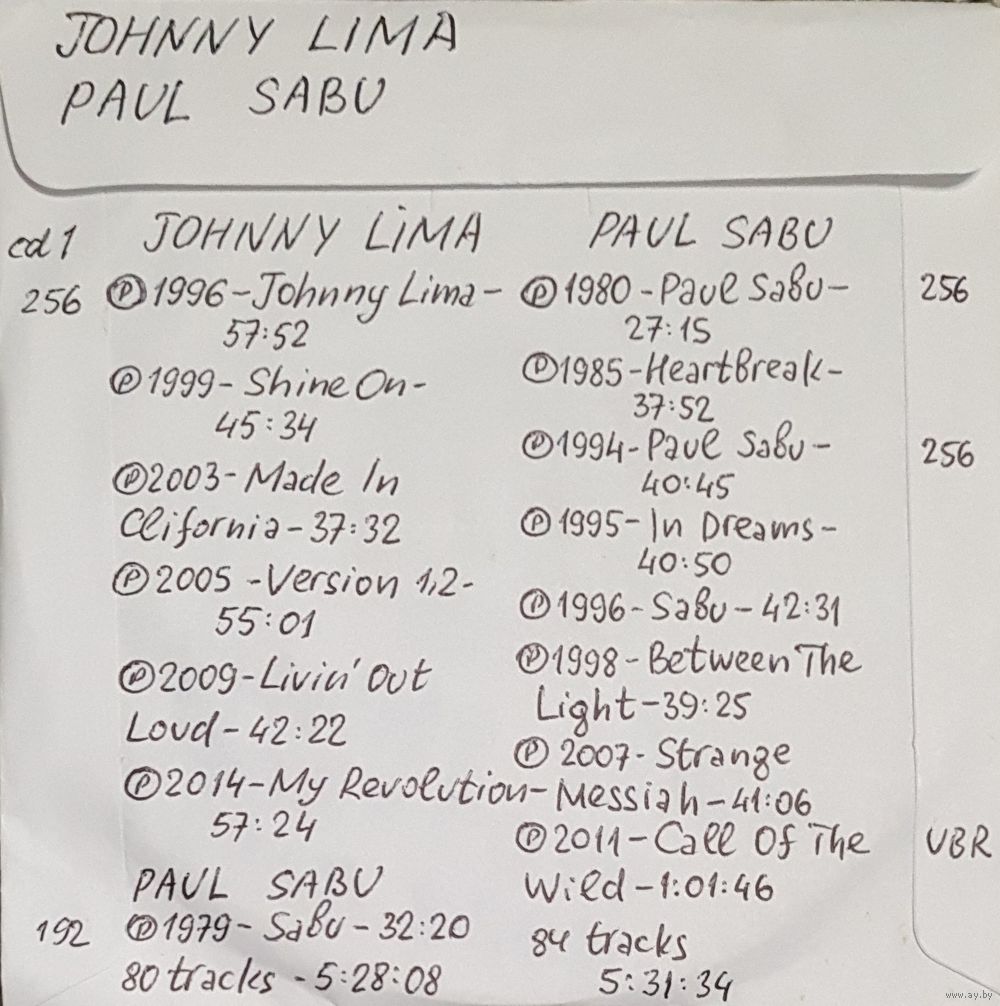 JOHNNY LIMA
PAUL SABU
cd 1
JOHNNY LiMA
256 Ⓟ1996-Johnny Lima-
57:52
Ⓟ1999-Shine On-
45:34
Ⓟ2003-Made In
Clifornia-37:32
Ⓟ2005-Version 1,2-
55:01
Ⓟ2009-Livin' Out
Loud-42:22
Ⓟ2014-My Revolution-
57:24
PAUL SABU
192 Ⓟ1979-Sabu-32:20
80 tracks-5:28:08
PAUL SABU
Ⓟ1980-Paul Sabu- 256
27:15
Ⓟ1985-HeartBreak-
37:52
Ⓟ1994-Paul Sabu- 256
40:45
Ⓟ1995-In Dreams-
40:50
Ⓟ1996-Sabu-42:31
Ⓟ1998-Between The
Light-39:25
Ⓟ2007-Strange
Messiah-41:06
Ⓟ2011-Call Of The VBR
Wild-1:01:46
84 tracks
5:31:34
www.ay.by